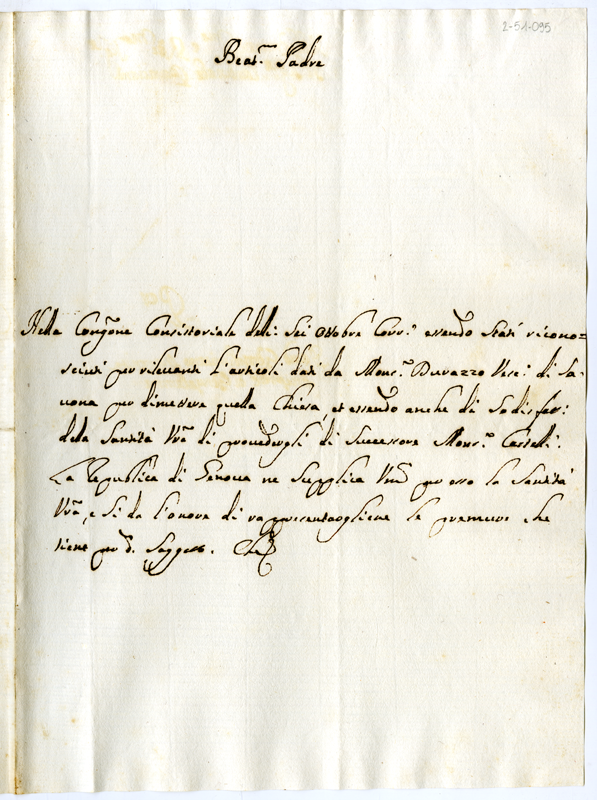 2-51-095
Beat.mo Padre
Nella Congne Consistoriale delli Sei Ottobre Corr.e essendo Stati ricono=
sciuti per rilevanti l'articoli dati da Mons.r Durazzo Vesc: di Sa-
vona per dimettere quella Chiesa, et essendo anche di Sodisfaz:
della Santità Vra di provedergli di Successore Mons.r Castelli.
La Republica di Genova ne Supplica per esso la Santità
Vra, e Si da l'onore di rappresentargliene le premure che
tiene per d. Sogge.